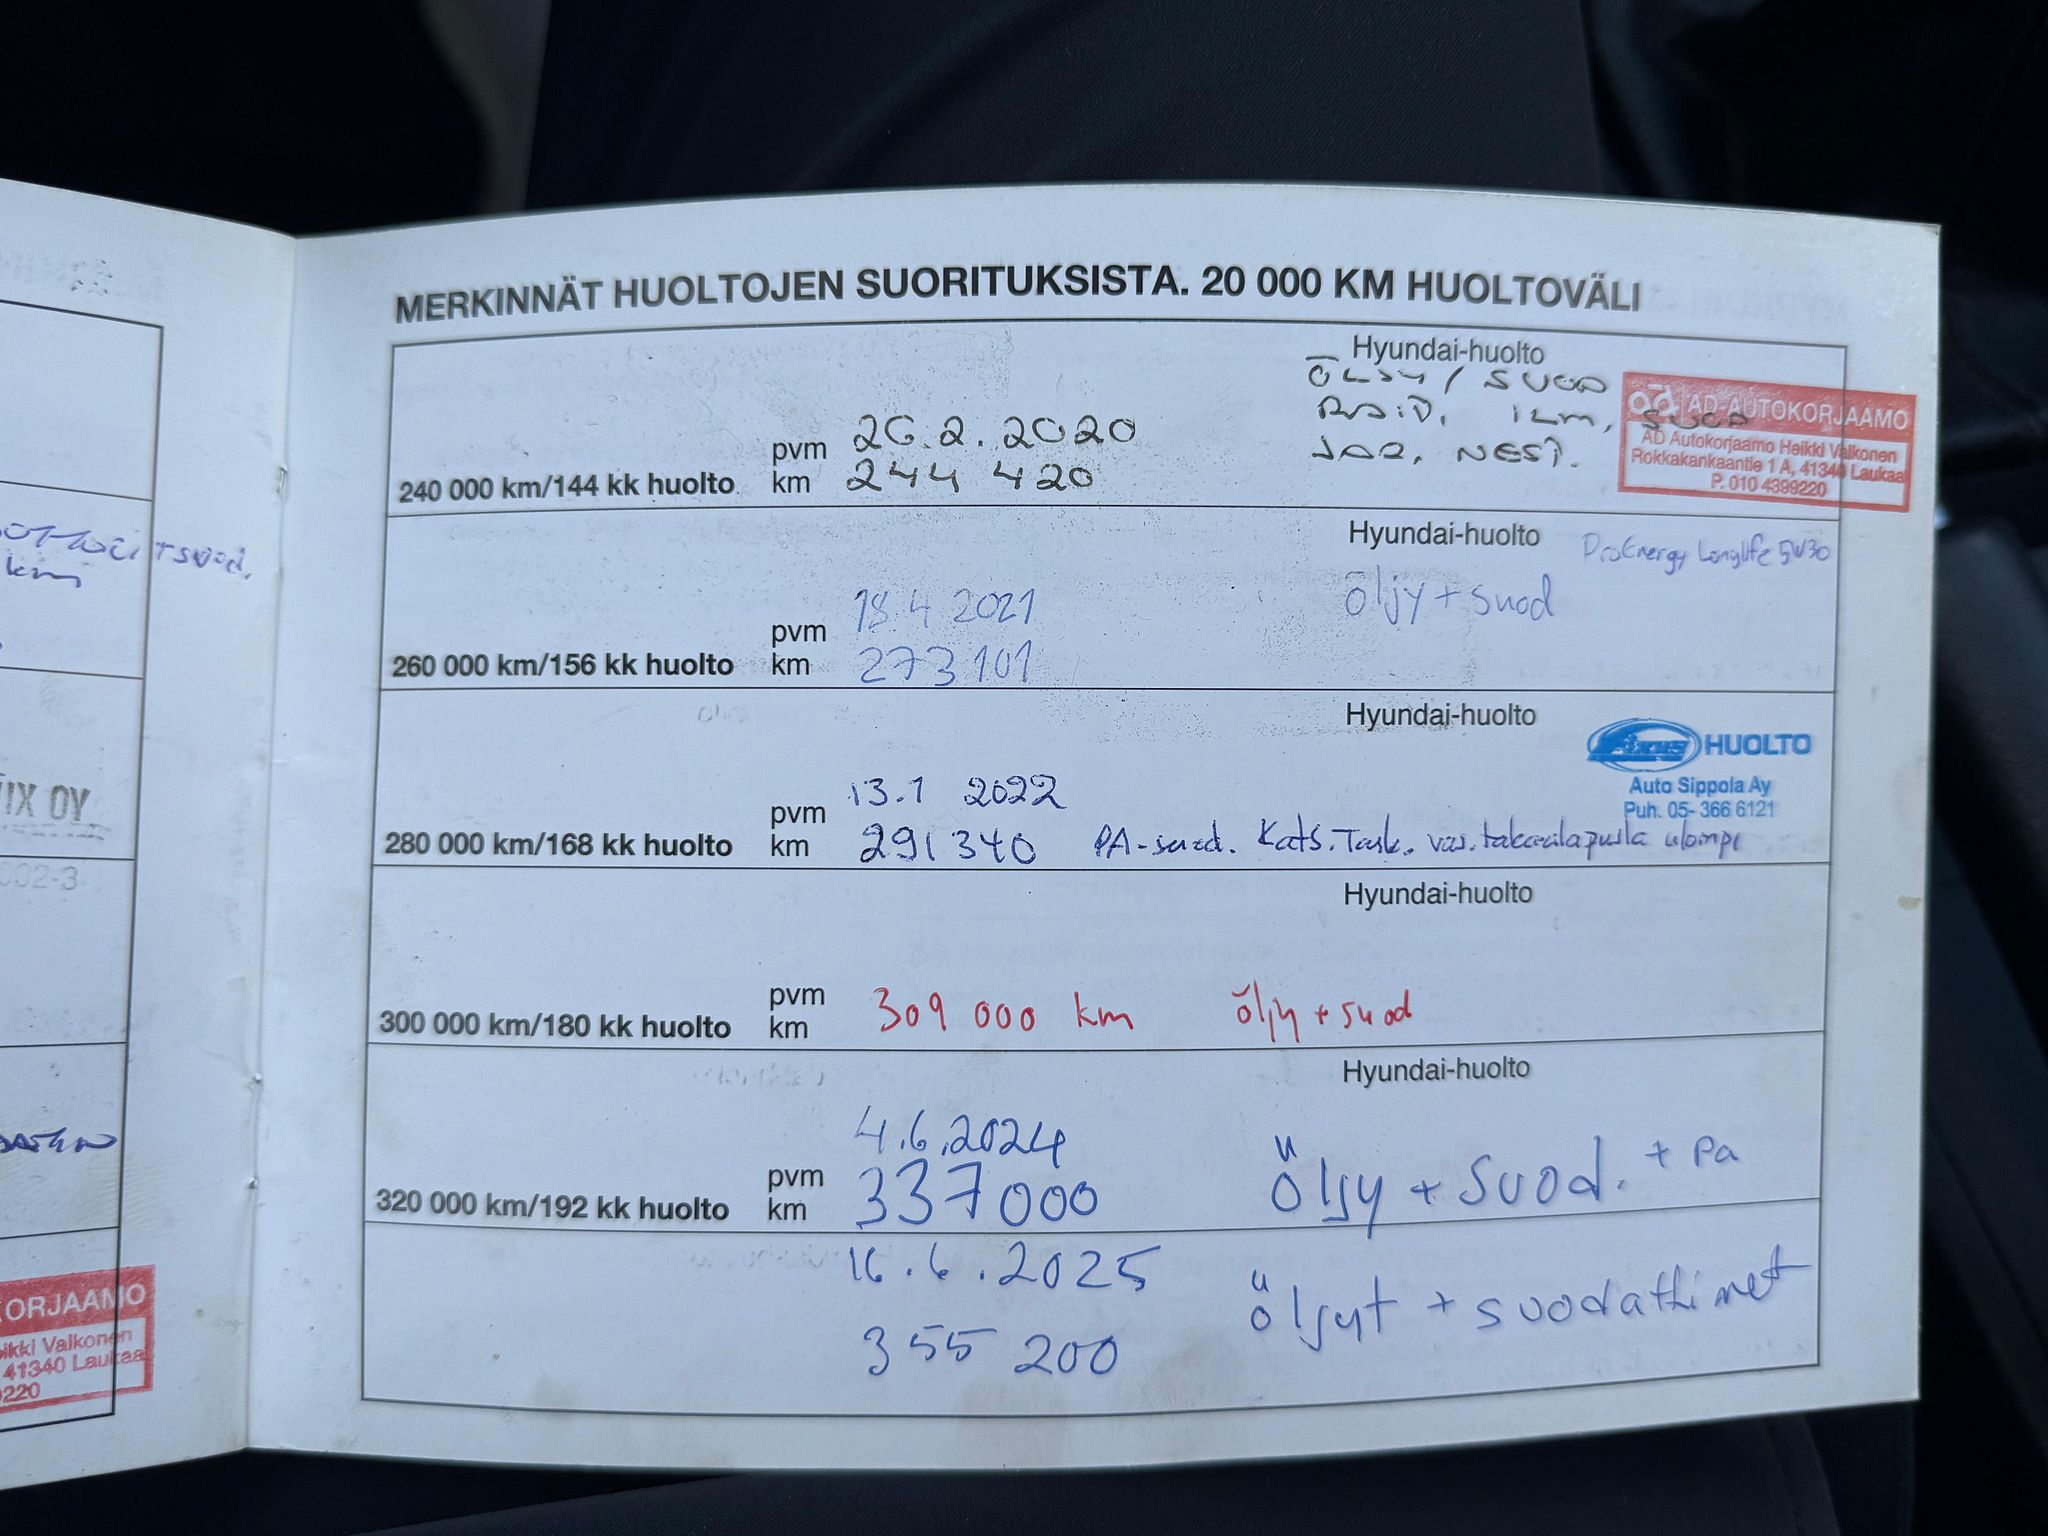 OTKCI+suod.
km
IX OY
002-3
KORJAAMO
eikki Valkonen
41340 Laukaa
0220
MERKINNÄT HUOLTOJEN SUORITUKSISTA. 20 000 KM HUOLTOVÄLI
Hyundai-huolto
ÖLJY/ SUOD
RAID. ILM, SUOD
JAR, NEST.
ad AD-AUTOKORJAAMO
AD Autokorjaamo Heikki Valkonen
Rokkakankaantie 1 A, 41340 Laukaa
P. 010 4399220
pvm 26.2.2020
240 000 km/144 kk huolto km 244 420
Hyundai-huolto ProEnergy Longlife 5W30
öljy + suod
pvm 18.4 2021
260 000 km/156 kk huolto km 273 101
Hyundai-huolto
Fixus HUOLTO
Auto Sippola Ay
Puh. 05- 366 6121
pvm 13.1 2022
280 000 km/168 kk huolto km 291 340 PA-suod. Kats.Tark. vas.takaalapusla ulompi
Hyundai-huolto
pvm
300 000 km/180 kk huolto km 309 000 km öljy + suod
Hyundai-huolto
pvm 4.6.2024
320 000 km/192 kk huolto km 337000 Öljy + suod. + Pa
16.6.2025
355 200 Öljyt + suodattimet